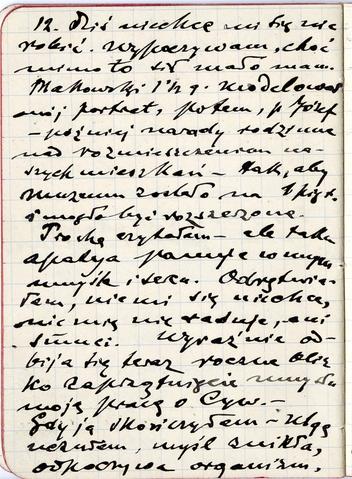 12. Dziś niechce mi się nic
robić. Wypoczywam, choć
mimo to sił mało mam.
Makowski 1½ g. modelował
mój portret, potem, p. Józef
– później narady rodzinne
nad rozmieszczeniem na-
szych mieszkań – tak, aby
muzeum zostało na I pięt.
i mogło być rozszerzone.
Trochę czytałam – ale taka
apatya panuje w mym
umyśle i sercu. Odrętwia-
łam, nic mi się niechce,
nic mię nie raduje, ani
smuci. Wyraźnie od-
bija się teraz roczne blis-
ko zaprzątnięcie umysłu
moją pracą o Cyw. –
gdy ją skończyłam – ulgę
uczułam, myśl znikła,
odpoczywa organizm,